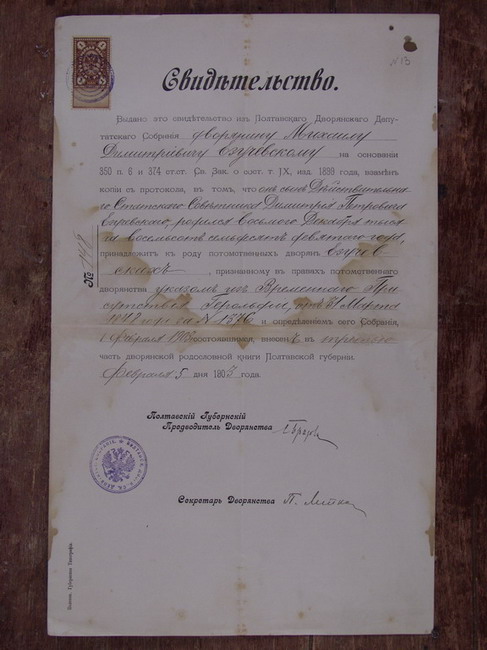 № 13
Свидѣтельство.
Выдано это свидѣтельство изъ Полтавскаго Дворянскаго Депу-
татскаго Собранія дворянину Михаилу
Димитріевичу на основаніи
350 п. 6 и 374 ст.ст. Св. Зак. о сост. т. IX, изд. 1899 года, взамѣнъ
копіи съ протокола, въ томъ, что онъ сынъ Дѣйствительна-
го Статскаго Совѣтника Димитрія Петровича
родился восьмого Декабря тысяча
восемьсотъ семьдесятъ девятаго года,
принадлежитъ къ роду потомственныхъ дворянъ
признанному въ правахъ потомственнаго
дворянства указомъ изъ Временнаго При-
сутствія Герольдіи, отъ 31 Марта
1848 года за № 1376 и опредѣленіемъ сего Собранія,
Февраля 1903 состоявшимся, внесенъ въ третью
часть дворянской родословной книги Полтавской губерніи.
Февраля 5 дня 1903 года.
№
Полтавскій Губернскій
Предводитель Дворянства
Секретарь Дворянства